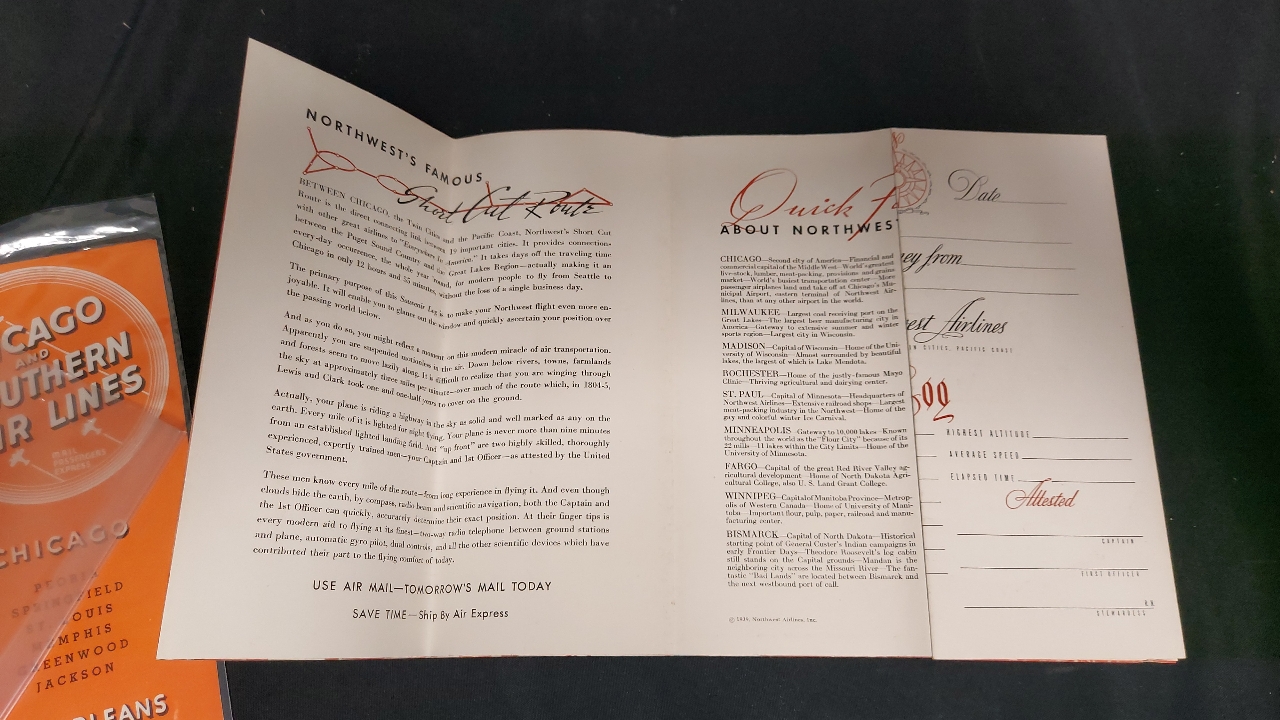 NORTHWEST'S FAMOUS
Short Cut Route
BETWEEN CHICAGO, the Twin Cities and the Pacific Coast, Northwest's Short Cut
Route is the direct connecting link between 19 important cities. It provides connections
with other great airlines to "Everywhere in America." It takes days off the traveling time
between the Puget Sound Country and the Great Lakes Region—actually making it an
every-day occurrence, the whole year round, for modern people to fly from Seattle to
Chicago in only 12 hours and 35 minutes, without the loss of a single business day.
The primary purpose of this Souvenir Log is to make your Northwest flight even more en-
joyable. It will enable you to glance out the window and quickly ascertain your position over
the passing world below.
And as you do so, you might reflect a moment on this modern miracle of air transportation.
Apparently you are suspended motionless in the air. Down below rivers, towns, farmlands
and forests seem to move lazily along. It is difficult to realize that you are winging through
the sky at approximately three miles per minute—over much of the route which, in 1804-5,
Lewis and Clark took one and one-half years to cover on the ground.
Actually, your plane is riding a highway in the sky as solid and well marked as any on the
earth. Every mile of it is lighted for night flying. Your plane is never more than nine minutes
from an established lighted landing field, and "up front" are two highly skilled, thoroughly
experienced, expertly trained men—your Captain and 1st Officer—as attested by the United
States government.
These men know every mile of the route—from long experience in flying it. And even though
clouds hide the earth, by compass, radio beam and scientific navigation, both the Captain and
the 1st Officer can quickly, accurately determine their exact position. At their finger tips is
every modern aid to flying at its finest—two-way radio telephone between ground stations
and plane, automatic gyro pilot, dual controls, and all the other scientific devices which have
contributed their part to the flying comfort of today.
USE AIR MAIL—TOMORROW'S MAIL TODAY
SAVE TIME—Ship By Air Express
Quick F
ABOUT NORTHWES
CHICAGO—Second city of America—Financial and
commercial capital of the Middle West—World's greatest
live-stock, lumber, meat-packing, provisions and grains
market—World's busiest transportation center—More
passenger airplanes land and take off at Chicago's Mu-
nicipal Airport, eastern terminal of Northwest Air-
lines, than at any other airport in the world.
MILWAUKEE—Largest coal receiving port on the
Great Lakes—The largest beer manufacturing city in
America—Gateway to extensive summer and winter
sports region—Largest city in Wisconsin.
MADISON—Capital of Wisconsin—Home of the Uni-
versity of Wisconsin—Almost surrounded by beautiful
lakes, the largest of which is Lake Mendota.
ROCHESTER—Home of the justly-famous Mayo
Clinic—Thriving agricultural and dairying center.
ST. PAUL—Capital of Minnesota—Headquarters of
Northwest Airlines—Extensive railroad shops—Largest
meat-packing industry in the Northwest—Home of the
gay and colorful winter Ice Carnival.
MINNEAPOLIS—Gateway to 10,000 lakes—Known
throughout the world as the "Flour City" because of its
22 mills—11 lakes within the City Limits—Home of the
University of Minnesota.
FARGO—Capital of the great Red River Valley ag-
ricultural development—Home of North Dakota Agri-
cultural College, also U. S. Land Grant College.
WINNIPEG—Capital of Manitoba Province—Metrop-
olis of Western Canada—Home of University of Mani-
toba—Important flour, pulp, paper, railroad and manu-
facturing center.
BISMARCK—Capital of North Dakota—Historical
starting point of General Custer's Indian campaigns in
early Frontier Days—Theodore Roosevelt's log cabin
still stands on the Capitol grounds—Mandan is the
neighboring city across the Missouri River—The fan-
tastic "Bad Lands" are located between Bismarck and
the next westbound port of call.
© 1939, Northwest Airlines, Inc.
Date
ey from
est Airlines
CITIES, PACIFIC COAST
og
HIGHEST ALTITUDE
AVERAGE SPEED
ELAPSED TIME
Attested
CAPTAIN
FIRST OFFICER
R.N.
STEWARDESS
ICAGO
AND
UTHERN
IR LINES
MAIL
PASSENGERS
EXPRESS
CHICAGO
PEORIA
SPRINGFIELD
ST. LOUIS
MEMPHIS
GREENWOOD
JACKSON
RLEANS